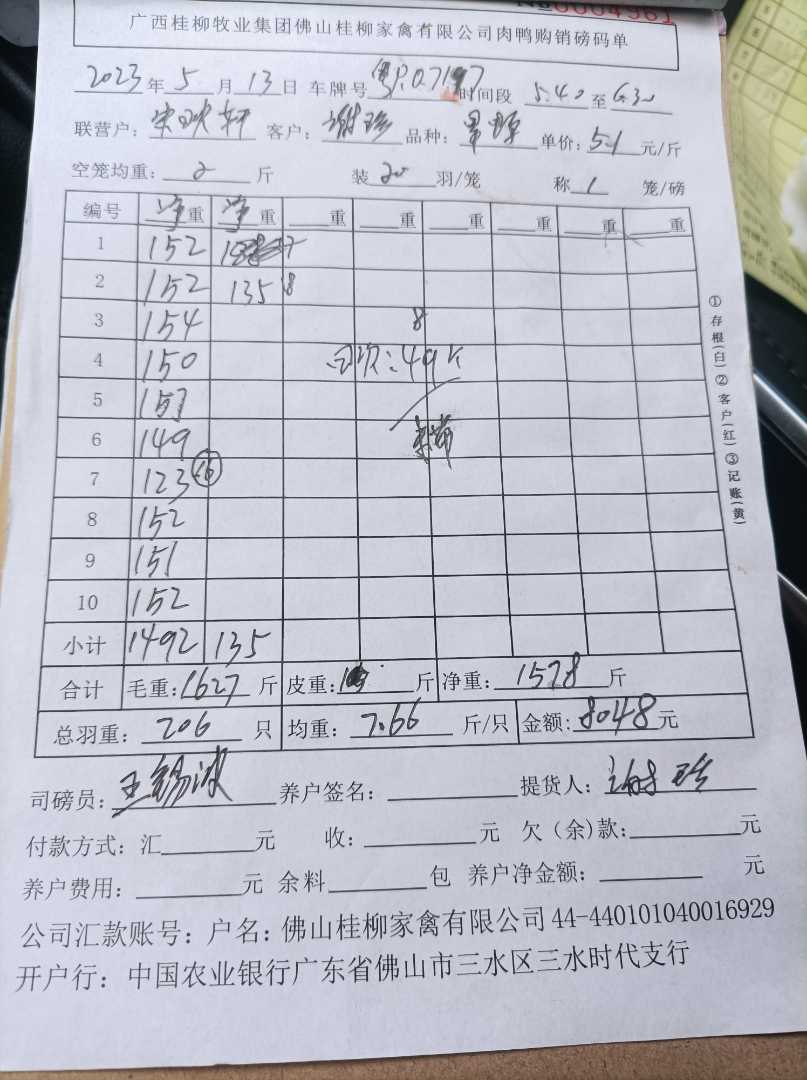 №0004961
广西桂柳牧业集团佛山桂柳家禽有限公司肉鸭购销磅码单
2023年5月13日 车牌号 粤P.07197 时间段 5.40至6.30
联营户: 宋映轩 客户: 谢珍 品种: 单价: 5.1元/斤
空笼均重: 2斤 装20羽/笼 称1笼/磅
编号 净重 净重 重 重 重 重 重 重
1 152
2 152 135 8
3 154 8
4 150 :49斤
5 157
6 149
7 123 16
8 152
9 151
10 152
小计 1492 135
合计 毛重:1627斤 皮重: 斤 净重:1578斤
总羽重: 206只 均重: 7.66斤/只 金额:8048元
司磅员: 王锡波 养户签名: 提货人: 谢珍
付款方式: 汇 元 收: 元 欠(余)款: 元
养户费用: 元 余料 包 养户净金额: 元
公司汇款账号: 户名: 佛山桂柳家禽有限公司 44-440101040016929
开户行: 中国农业银行广东省佛山市三水区三水时代支行
①存根(白)②客户(红)③记账(黄)